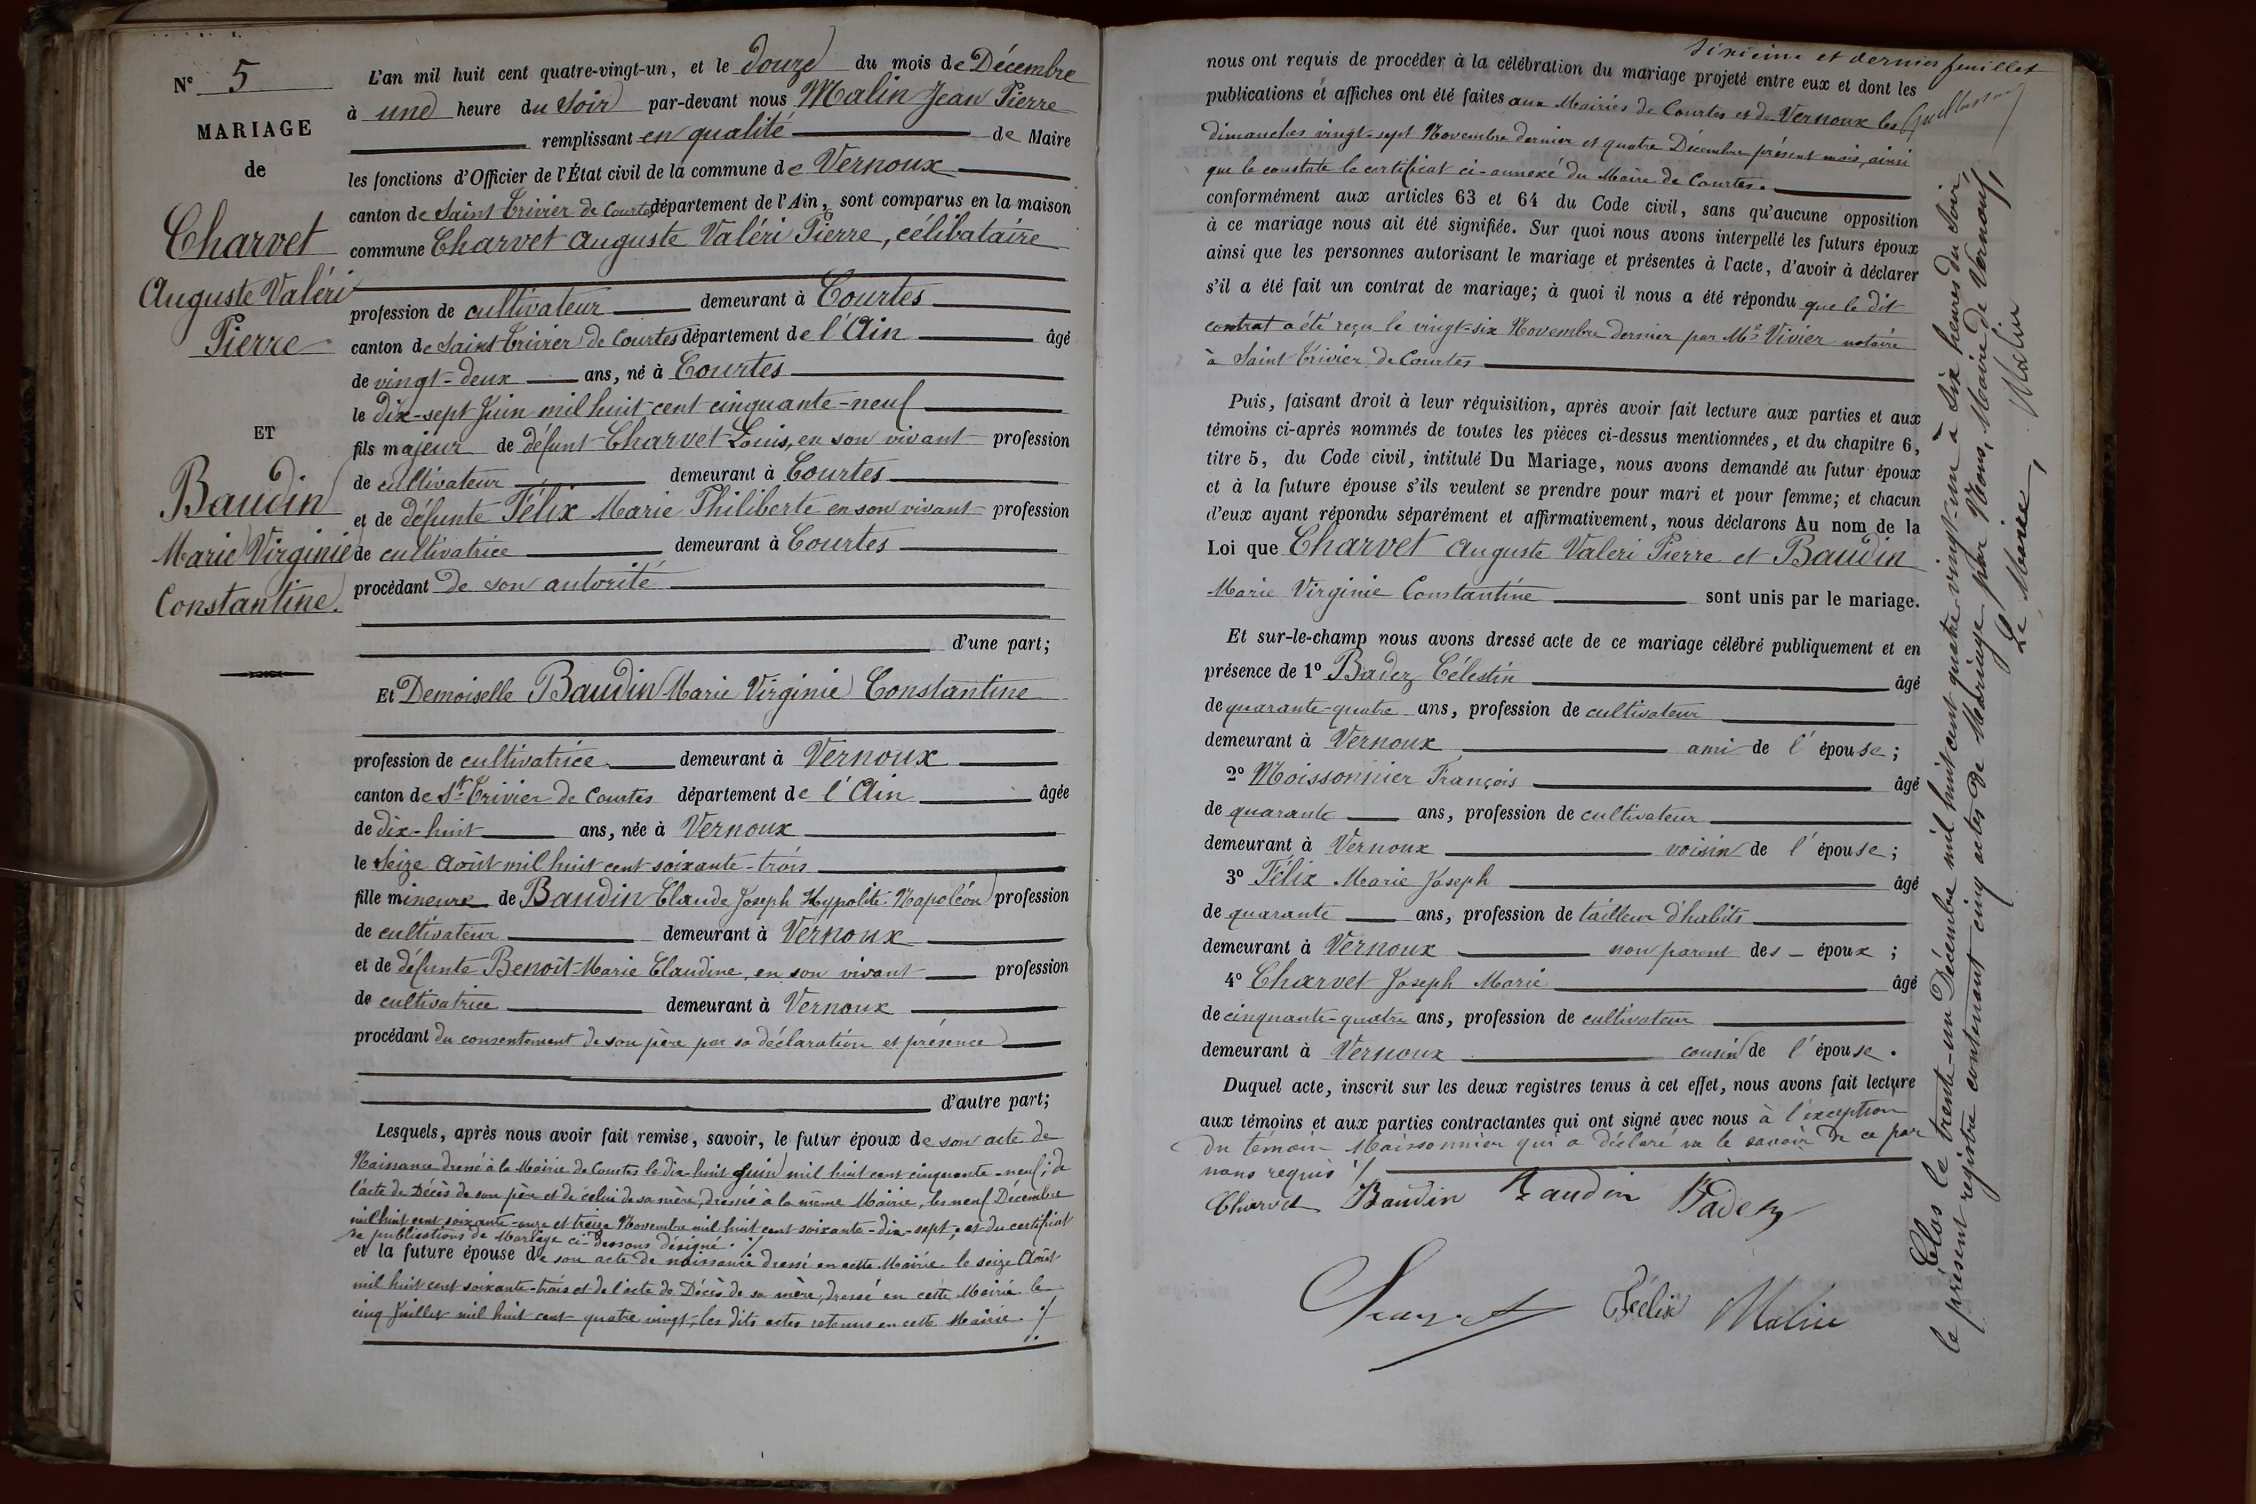 N° 5
MARIAGE
de
Charvet
Auguste Valéri
Pierre
ET
Baudin
Marie Virginie
Constantine.
L'an mil huit cent quatre-vingt-un, et le douze du mois de Décembre
à une heure du soir par-devant nous Malin Jean Pierre
remplissant en qualité de Maire
les fonctions d'Officier de l'État civil de la commune de Vernoux
canton de Saint Trivier de Courtes département de l'Ain, sont comparus en la maison
commune Charvet Auguste Valéri Pierre, célibataire
profession de cultivateur demeurant à Courtes
canton de Saint Trivier de Courtes département de l'Ain âgé
de vingt-deux ans, né à Courtes
le dix-sept Juin mil huit cent cinquante-neuf
fils majeur de défunt Charvet Louis, en son vivant profession
de cultivateur demeurant à Courtes
et de défunte Félix Marie Philiberte en son vivant profession
de cultivatrice demeurant à Courtes
procédant de son autorité
d'une part;
Et Demoiselle Baudin Marie Virginie Constantine
profession de cultivatrice demeurant à Vernoux
canton de St Trivier de Courtes département de l'Ain âgée
de dix-huit ans, née à Vernoux
le seize Août mil huit cent soixante-trois
fille mineure de Baudin Claude Joseph Hypolite Napoléon profession
de cultivateur demeurant à Vernoux
et de défunte Benoît Marie Claudine, en son vivant profession
de cultivatrice demeurant à Vernoux
procédant du consentement de son père par sa déclaration et présence
d'autre part;
Lesquels, après nous avoir fait remise, savoir, le futur époux de son acte de
Naissance dressé à la Mairie de Courtes le dix-huit Juin mil huit cent cinquante-neuf; de
l'acte de Décès de son père et de celui de sa mère, dressés à la même Mairie, les neuf Décembre
mil huit cent soixante-onze et treize Novembre mil huit cent soixante-dix-sept; et du certificat
de publications de Mariage ci-dessous désigné ./
et la future épouse de son acte de naissance dressé en cette Mairie le seize Août
mil huit cent soixante-trois et de l'acte de Décès de sa mère, dressé en cette Mairie le
cinq Juillet mil huit cent quatre vingt, les dits actes retenus en cette Mairie ./.
Sixième et dernier feuillet
nous ont requis de procéder à la célébration du mariage projeté entre eux et dont les
publications et affiches ont été faites aux Mairies de Courtes et de Vernoux les
dimanches vingt-sept Novembre dernier et quatre Décembre présent mois, ainsi
que le constate le certificat ci-annexé du Maire de Courtes.
conformément aux articles 63 et 64 du Code civil, sans qu'aucune opposition
à ce mariage nous ait été signifiée. Sur quoi nous avons interpellé les futurs époux
ainsi que les personnes autorisant le mariage et présentes à l'acte, d'avoir à déclarer
s'il a été fait un contrat de mariage; à quoi il nous a été répondu que le dit
contrat a été reçu le vingt-six Novembre dernier par Me Vivier notaire
à Saint Trivier de Courtes
Puis, faisant droit à leur réquisition, après avoir fait lecture aux parties et aux
témoins ci-après nommés de toutes les pièces ci-dessus mentionnées, et du chapitre 6,
titre 5, du Code civil, intitulé Du Mariage, nous avons demandé au futur époux
et à la future épouse s'ils veulent se prendre pour mari et pour femme; et chacun
d'eux ayant répondu séparément et affirmativement, nous déclarons Au nom de la
Loi que Charvet Auguste Valeri Pierre et Baudin
Marie Virginie Constantine sont unis par le mariage.
Et sur-le-champ nous avons dressé acte de ce mariage célébré publiquement et en
présence de 1° Badez Célestin âgé
de quarante-quatre ans, profession de cultivateur
demeurant à Vernoux ami de l'épouse;
2° Moissonnier François âgé
de quarante ans, profession de cultivateur
demeurant à Vernoux voisin de l'épouse;
3° Félix Marie Joseph âgé
de quarante ans, profession de tailleur d'habits
demeurant à Vernoux non parent des époux;
4° Charvet Joseph Marie âgé
de cinquante-quatre ans, profession de cultivateur
demeurant à Vernoux cousin de l'épouse.
Duquel acte, inscrit sur les deux registres tenus à cet effet, nous avons fait lecture
aux témoins et aux parties contractantes qui ont signé avec nous à l'exception
du témoin Moissonnier qui a déclaré ne le savoir de ce par
nous requis ./
Charvet Baudin Baudin Badez
Félix Malin
Clos le trente-un Décembre mil huit cent quatre vingt-un à six heures du soir,
le présent registre contenant cinq actes de Mariage par Nous, Maire de Vernoux,
Le Maire,
Malin